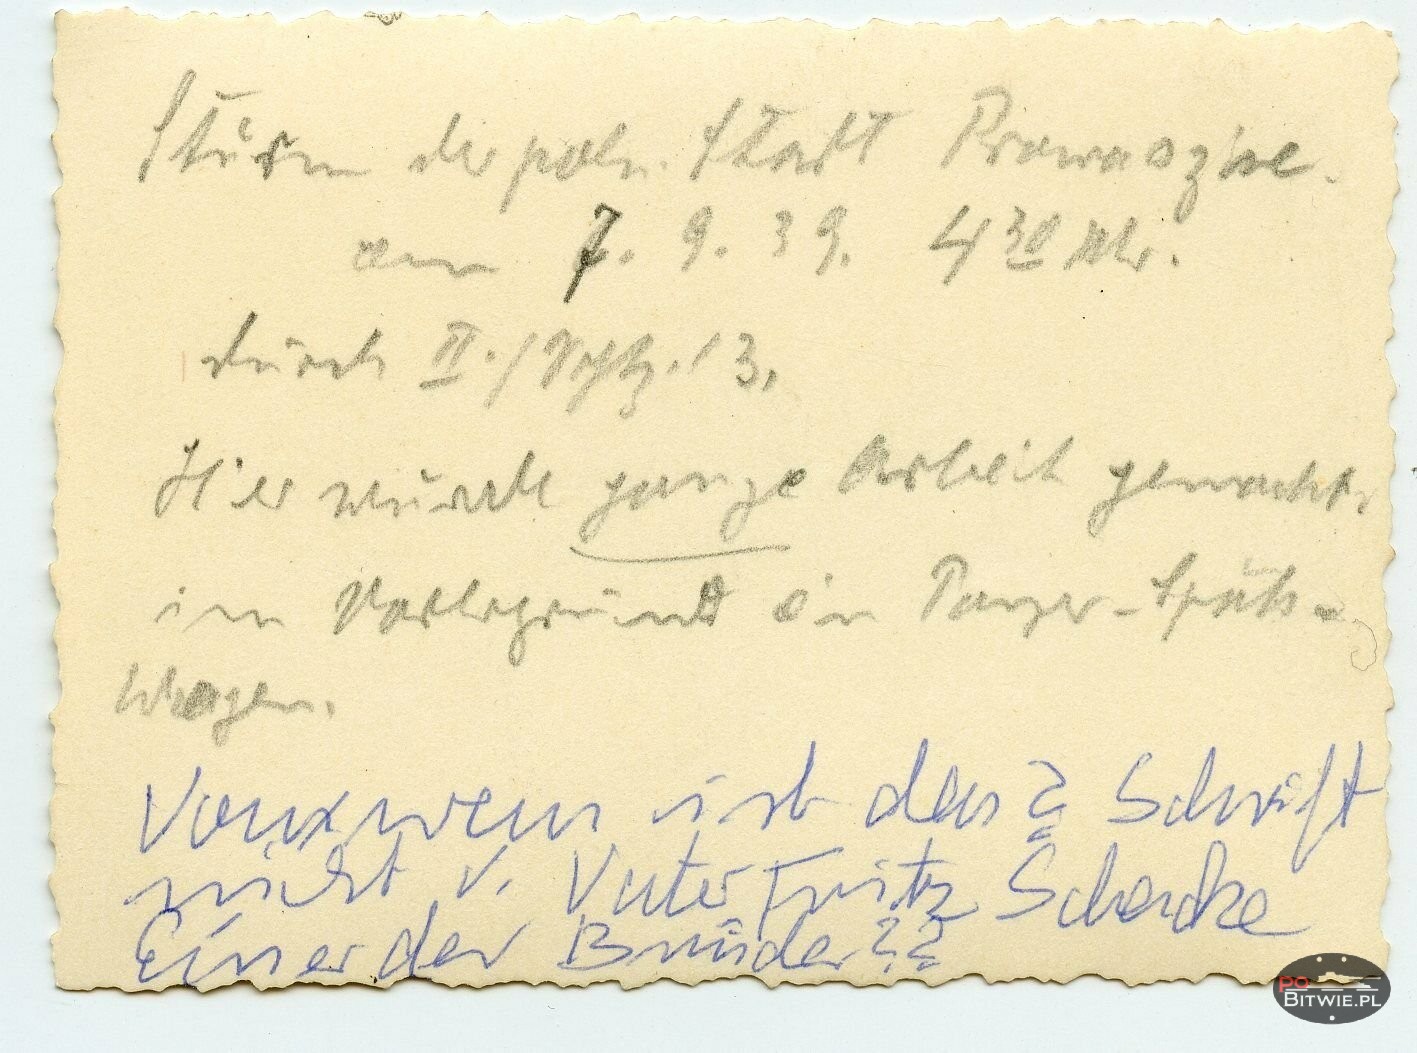 Sturm der poln. Stadt Prowaszise.
am 7. 9. 39. 4 30 Uhr.
durch II. / Schtz. / 3.
Hier wurde ganze Arbeit gemacht.
im Vordergrund ein Panzer-Späh-
Wagen.
Von wem ist das? Schrift
nicht v. Vater Fritz
Einer der Brüder??
PO
BITWIE.PL